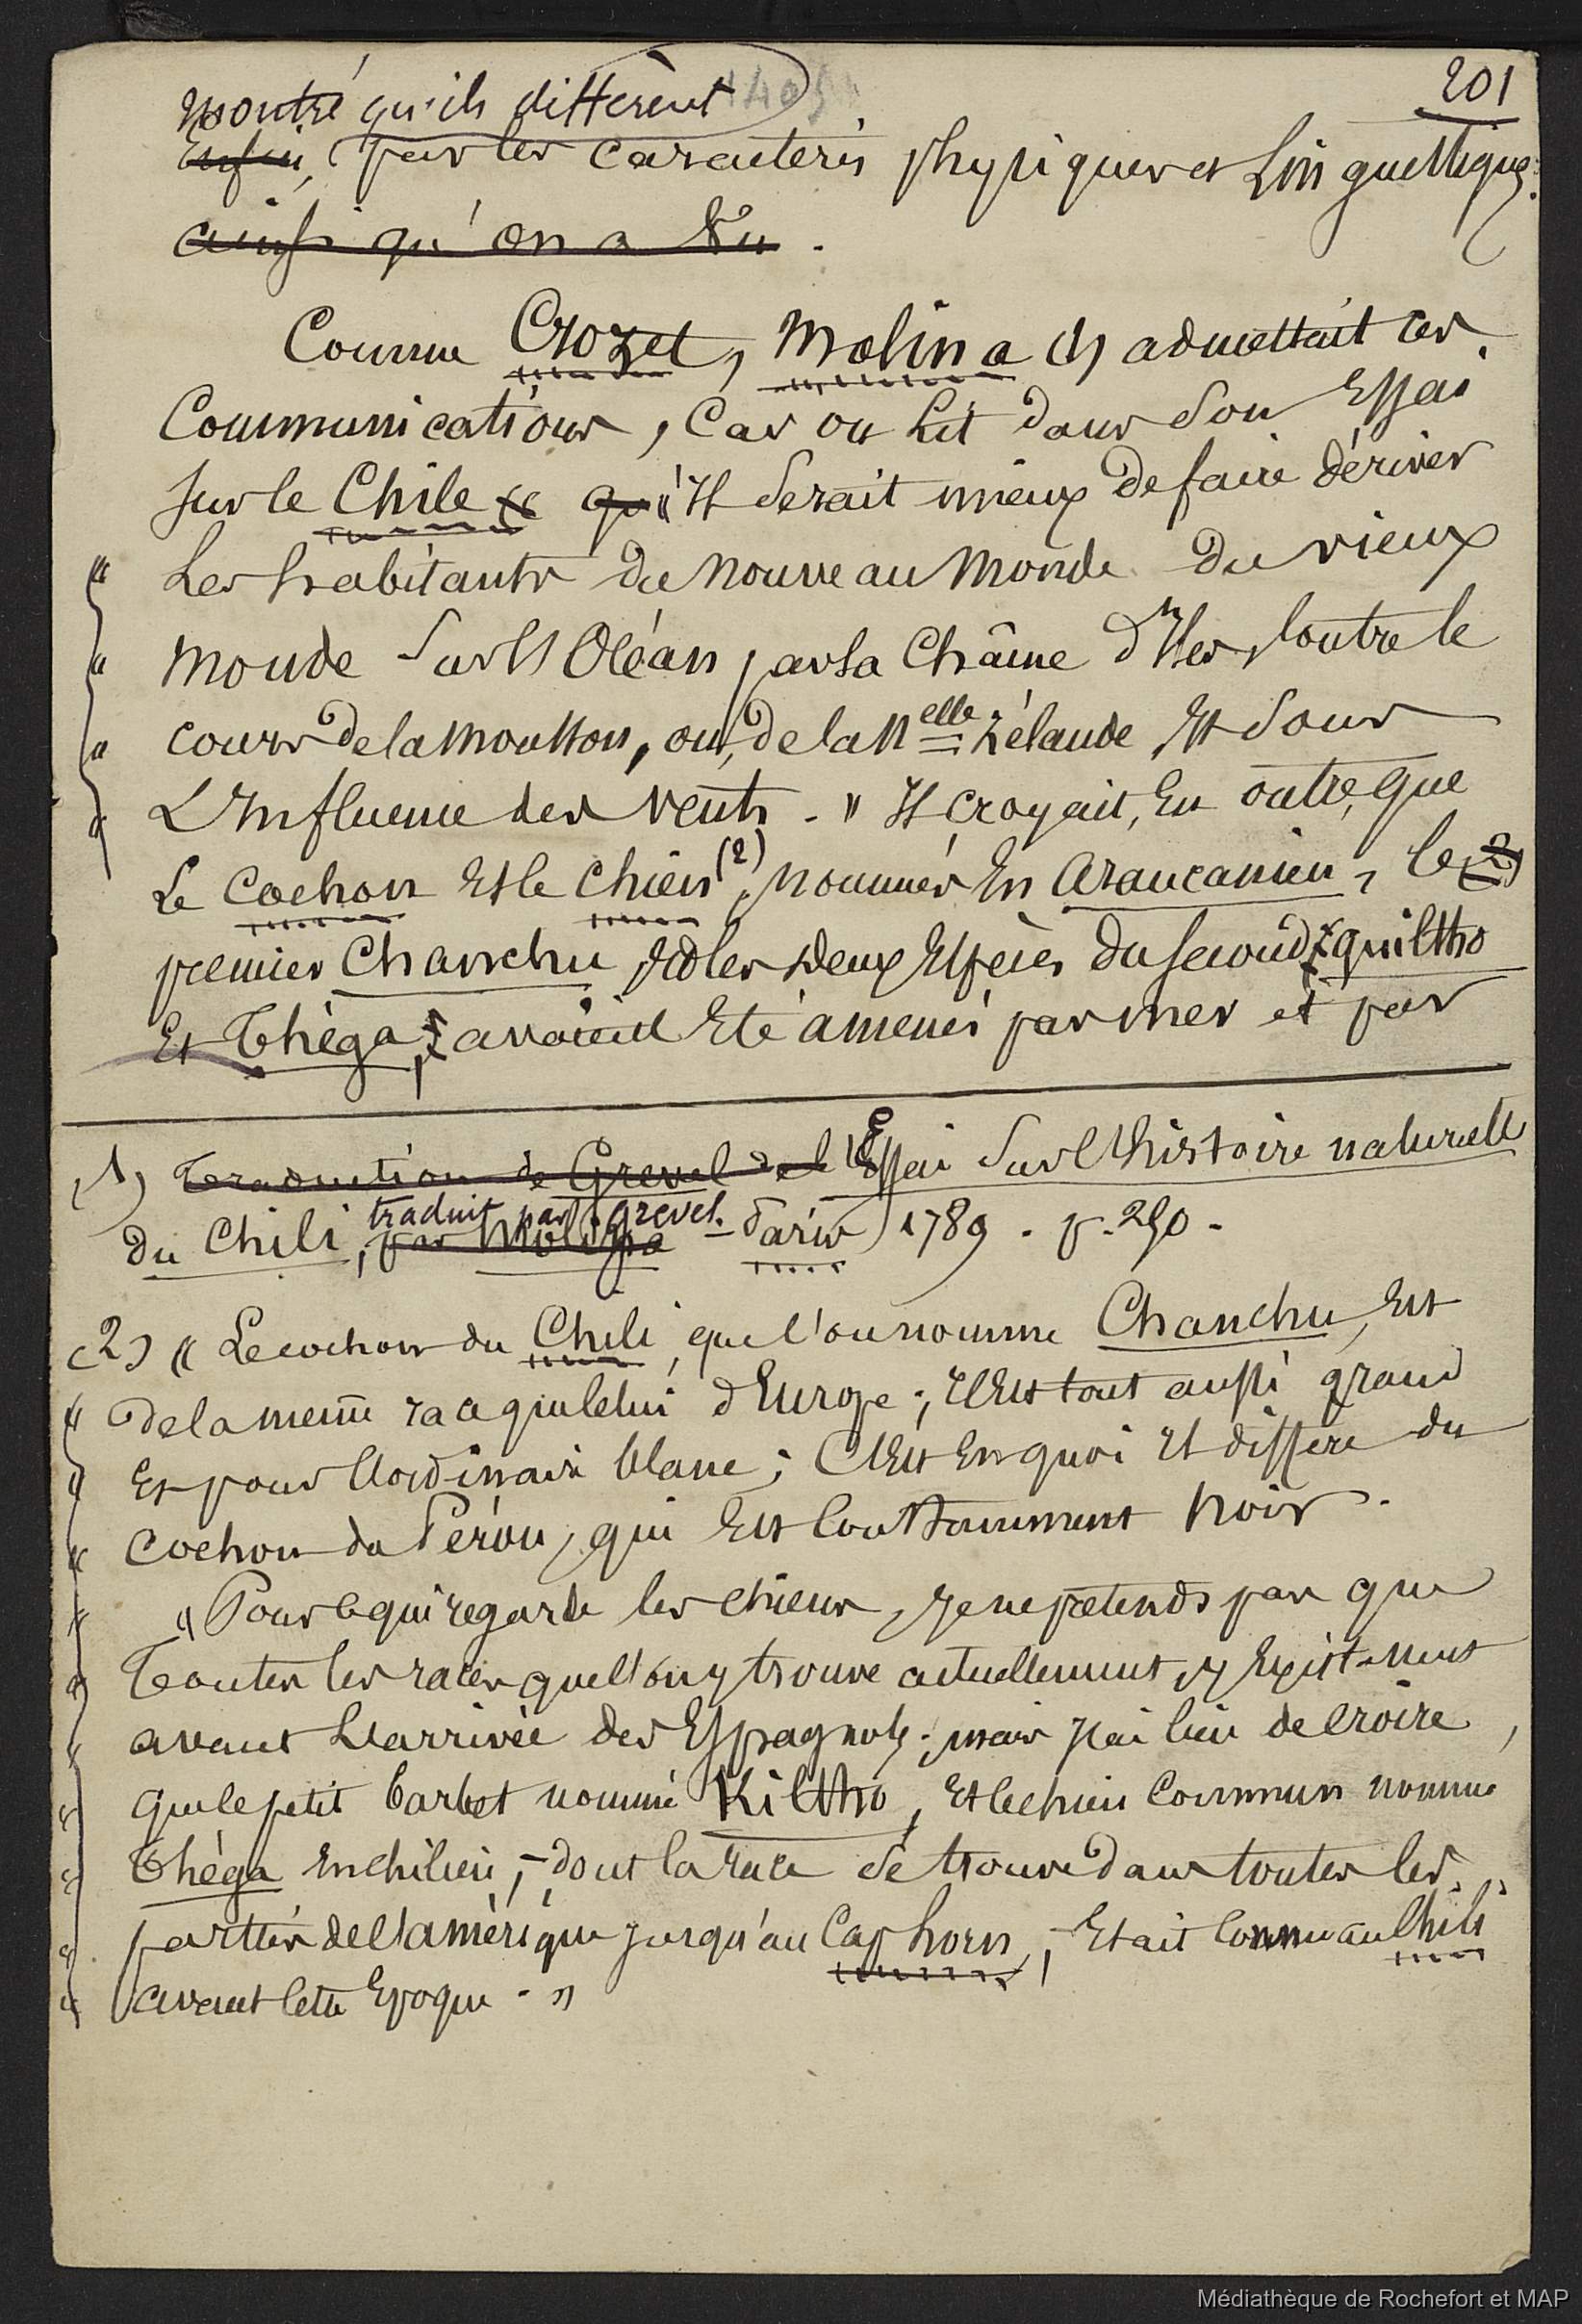 201
montré qu'ils diffèrent
~~Enfin~~, par les caractères physiques et Linguistiques.
~~ainsi qu'on a vu~~.
Comme Crozet, Molina (1) admettait ces
Communications, Car on Lit dans son Essai
sur le Chile ~~qu'~~ « Il serait mieux de faire dériver
« Les habitants du nouveau Monde du vieux
« monde sur l'Océan par la Chaîne d'Iles contre le
« cours de la mousson, ou, de la Nelle Zélande Et sous
« L'Influence des vents. » Il croyait, En outre, que
Le Cochon Et le Chien (2), nommés En Araucanien, le ~~(2)~~
premier Chanchu, Et les deux Espèces du second, quiltho
Et Thèga, avaient Eté amenés par mer et par
(1) ~~Traduction de Grevel de l'~~ Essai sur l'histoire naturelle
du Chili, traduit par Grevel. ~~par Molina~~ - Paris, 1789. p. 250.
(2) « Le cochon du Chili, que l'on nomme Chanchu, Est
« de la même race que celui d'Europe; Il Est tout aussi grand
« Et pour l'ordinaire blanc; C'Est En quoi Il diffère du
« Cochon du Pérou, qui Est Constamment noir.
« « Pour ce qui regarde les chiens, Je ne prétends pas que
« Toutes les races que l'on y trouve actuellement, y Existaient
« avant L'arrivée des Espagnols; mais J'ai lieu de croire,
« que le petit barbet nommé Kiltho, Et le chien Commun nommé
« Thèga En chilien, - dont la race se trouve dans toutes les
« parties de l'amérique jusqu'au Cap horn, - Etait Connu au Chili
« avant cette Epoque. »
Médiathèque de Rochefort et MAP